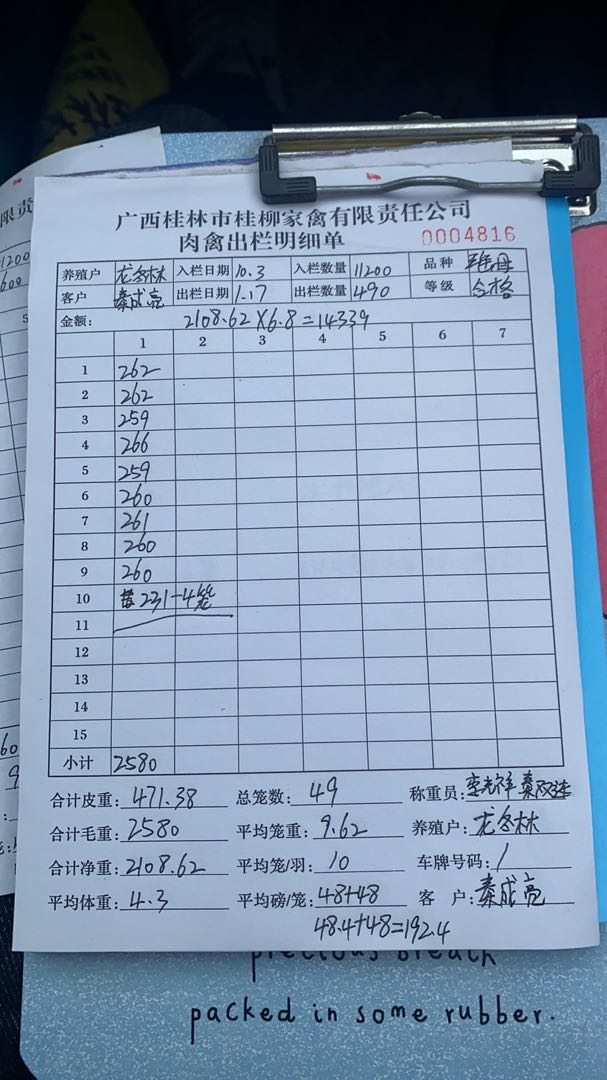 限责
1200
600
广西桂林市桂柳家禽有限责任公司
肉禽出栏明细单 0004816
养殖户 龙冬林 入栏日期 10.3 入栏数量 11200 品种
客户 秦成亮 出栏日期 1.17 出栏数量 490 等级 合格
金额: 2108.62×6.8=14339
1 2 3 4 5 6 7
1 262
2 262
3 259
4 266
5 259
6 260
7 261
8 260
9 260
10 231-4笼
11
12
13
14
15
小计 2580
合计皮重: 471.38 总笼数: 49 称重员:
合计毛重: 2580 平均笼重: 9.62 养殖户: 龙冬林
合计净重: 2108.62 平均笼/羽: 10 车牌号码: /
平均体重: 4.3 平均磅/笼: 48+48 客户: 秦成亮
48.4+48=192.4
precious breath
packed in some rubber.